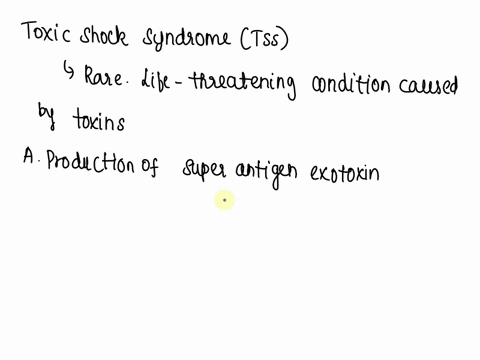 Toxic shock syndrome (TSS)
↳ Rare. life-threatening condition caused
by toxins
A. Production of super antigen exotoxin